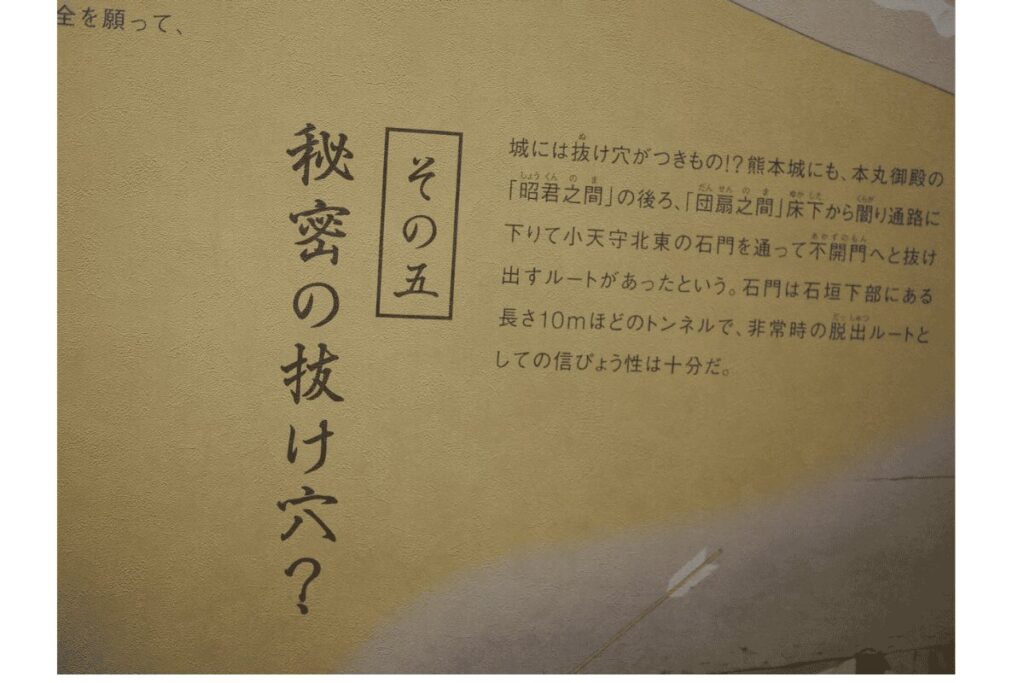 全を願って、
その五
秘密の抜け穴？
城には抜け穴がつきもの!?熊本城にも、本丸御殿の
「昭君之間」の後ろ、「団扇之間」床下から闇り通路に
下りて小天守北東の石門を通って不開門へと抜け
出すルートがあったという。石門は石垣下部にある
長さ10mほどのトンネルで、非常時の脱出ルートと
しての信ぴょう性は十分だ。